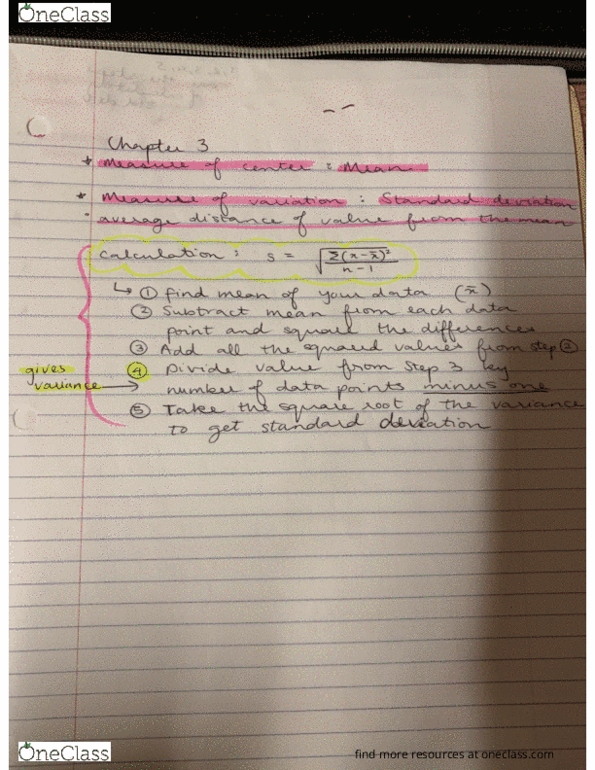 OneClass
Chapter 3
* Measure of center : Mean
* Measure of variation : Standard deviation
- average distance of value from the mean
Calculation : s = √Σ(x-x̄)²/n-1
↳ ① find mean of your data (x̄)
② Subtract mean from each data
point and square the differences
③ Add all the squared values from step ②
gives ④ Divide value from step 3 by
variance → number of data points minus one
⑤ Take the square root of the variance
to get standard deviation
OneClass
find more resources at oneclass.com